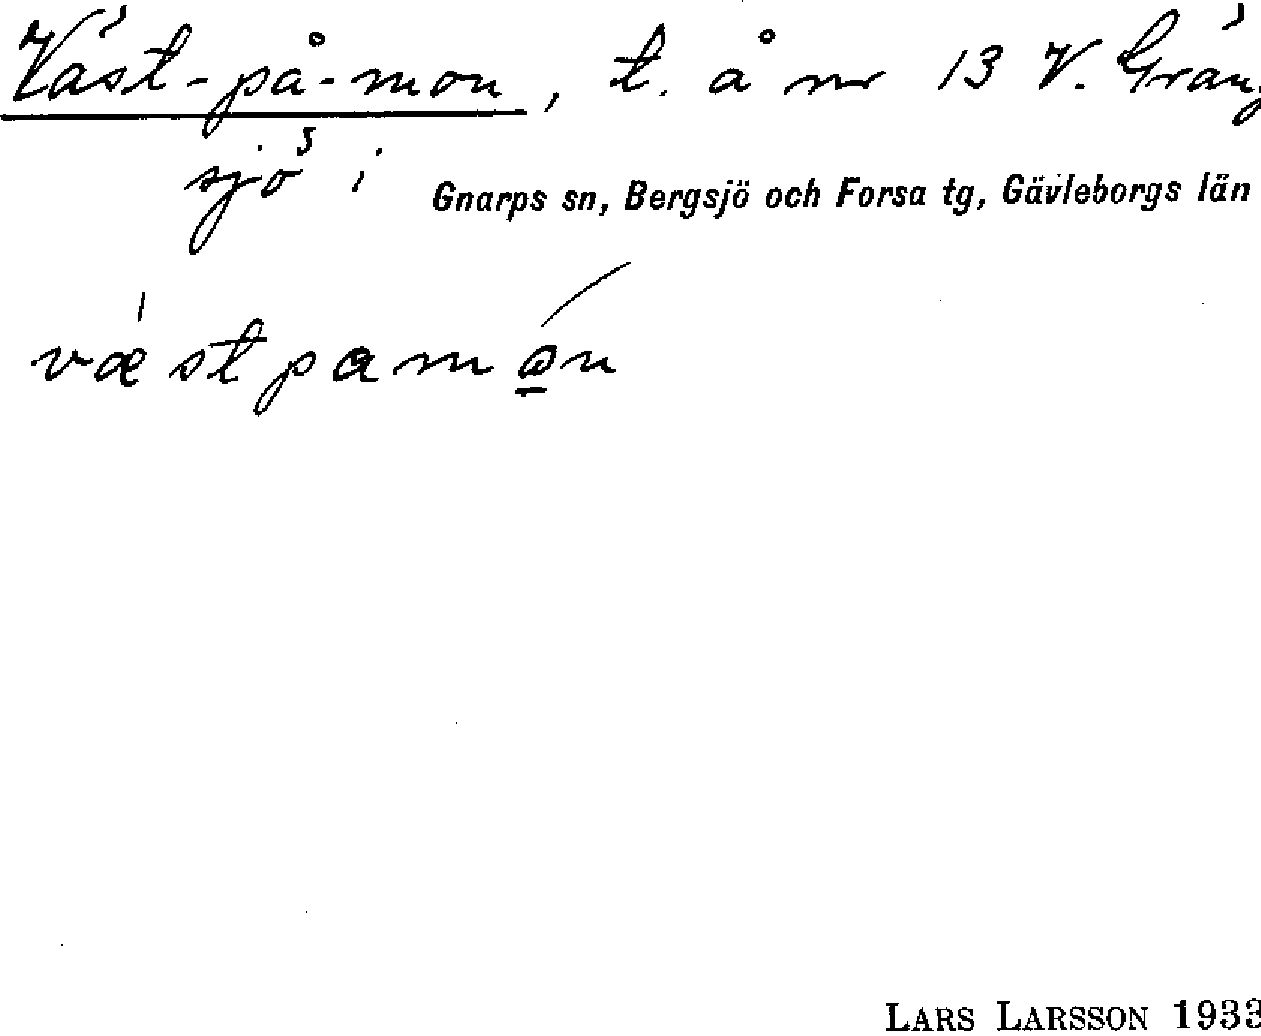 Väst-på-mon, t. å nr 13 V. Gräng
sjö i Gnarps sn, Bergsjö och Forsa tg, Gävleborgs län
væstpamɷn
LARS LARSSON 1933